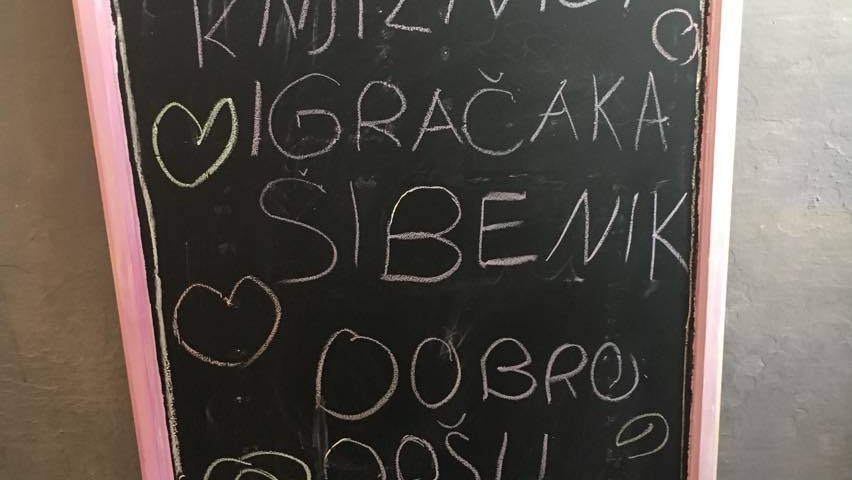 IGRAČAKA
ŠIBENIK
DOBRO
DOŠLI